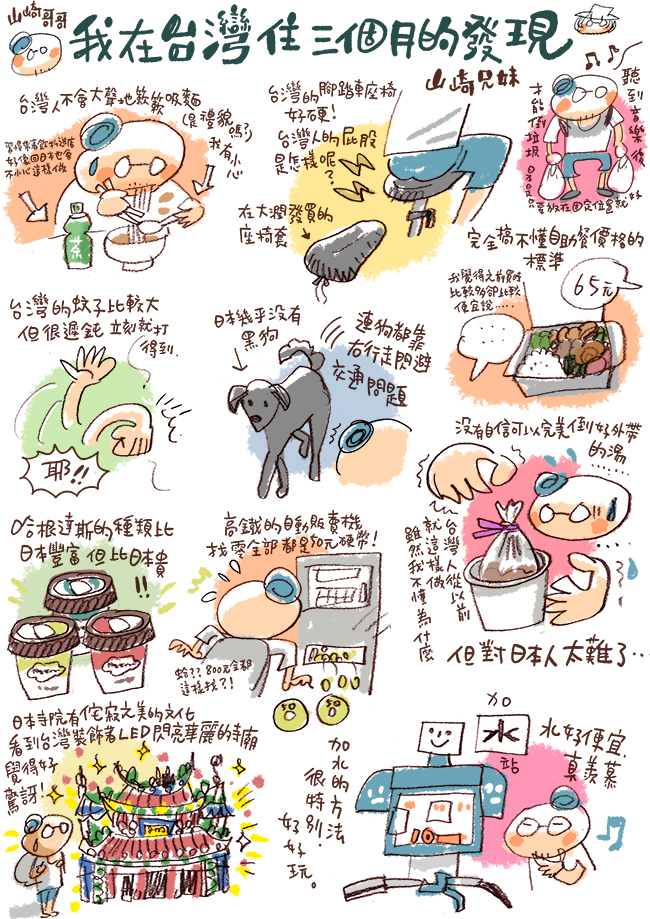 山崎哥哥
我在台灣住三個月的發現
山崎兄妹
台灣人不會大聲地簌簌吸麵
是禮貌嗎?
我有小心
不小心這樣做
茶
台灣的腳踏車座椅
好硬!
台灣人的屁股
是怎樣呢?
在大潤發買的
座椅套
聽到音樂後
才能倒垃圾
日本是
只要放在固定位置就好
完全搞不懂自助餐價格的
標準
我覺得之前買的
比較多卻比較
便宜說……
65元
……
台灣的蚊子比較大
但很遲鈍 立刻就打
得到.
耶!!
日本幾乎沒有
黑狗
連狗都靠
右行走閃避
交通問題
沒有自信可以完美倒好外帶
的湯
......
台灣人從以前
就這樣做
雖然我不懂為什麼
但對日本人太難了…
哈根達斯的種類比
日本豐富 但比日本貴
!!
高鐵的自動販賣機
找零全部都是50元硬幣!
蛤??800元全都
這樣找?!
50
50
日本寺院有侘寂之美的文化
看到台灣裝飾著LED閃亮華麗的寺廟
覺得好
驚訝!
加水的方法
很特別.
好好玩。
加
水
站
水好便宜.
真羨慕